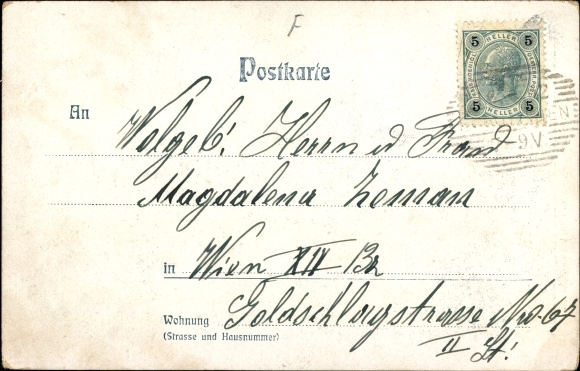 F
Postkarte
5 HELLER 5
5 HELLER 5
9V
An Wolgeb! Herrn u
Magdalena Zeman
in Wien XIV Bz
Wohnung Goldschlagstrasse No 67
(Strasse und Hausnummer)
II St!